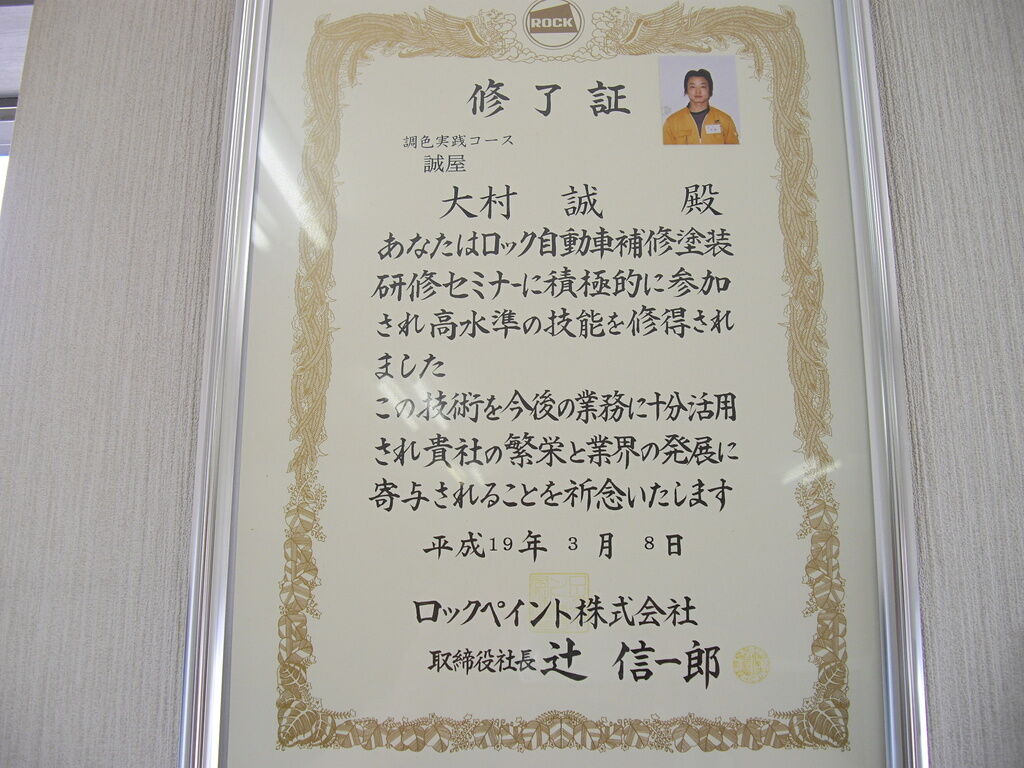 ROCK
修了証
調色実践コース
誠屋
大村 誠 殿
あなたはロック自動車補修塗装
研修セミナーに積極的に参加
され高水準の技能を修得され
ました
この技術を今後の業務に十分活用
され貴社の繁栄と業界の発展に
寄与されることを祈念いたします
平成19年 3月 8日
ロックペイント株式会社
取締役社長 辻 信一郎